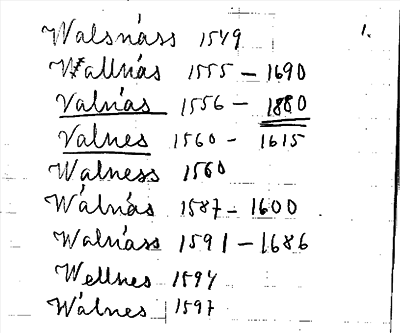 Walsnäss 1549 1.
Wallnäs 1555 – 1690
Valnäs 1556 – 1880
Valnes 1560 – 1615
Walness 1560
Wálnäs 1587 – 1600
Walnäss 1591 – 1686
Wellnes 1594
Wálnes 1597